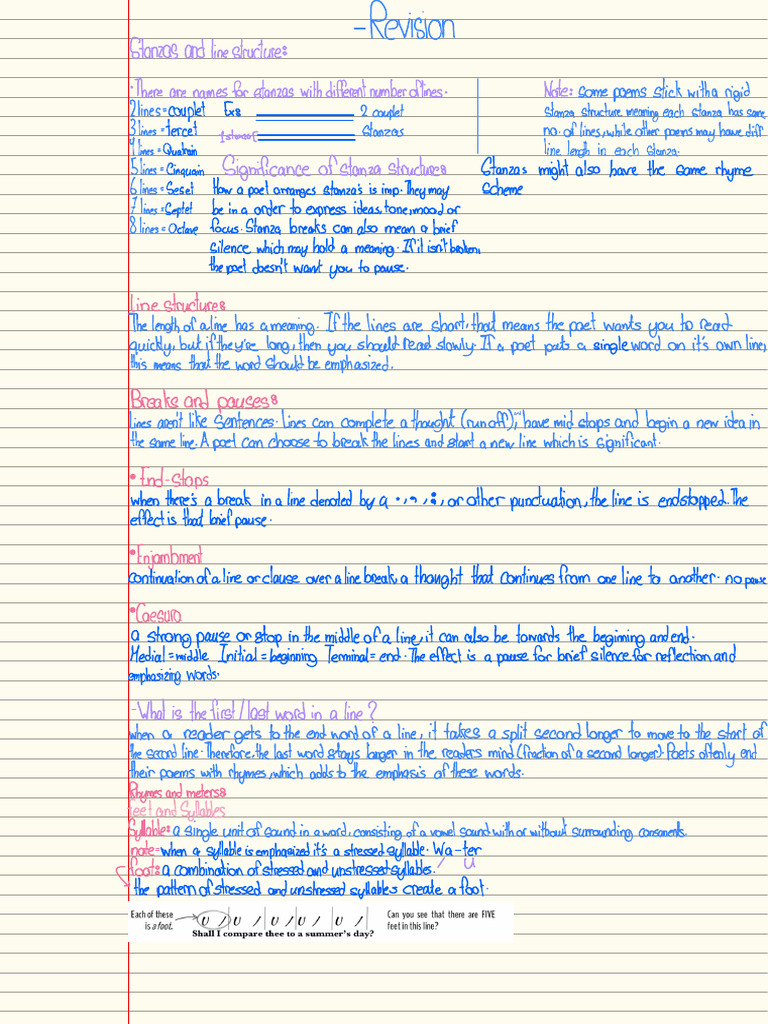 -Revision
Stanzas and line structure:
·There are names for stanzas with different number of lines.
2 lines = couplet Ex: 2 couplet
3 lines = tercet 1 stanza Stanzas
4 lines = Quatrain
5 lines = Cinquain
6 lines = Seset
7 lines = Septet
8 lines = Octave
Note: some poems stick with a rigid
stanza structure meaning each stanza has same
no. of lines, while other poems may have diff
line length in each stanza.
Stanzas might also have the same rhyme
scheme
Significance of stanza structure:
How a poet arranges stanza's is imp. They may
be in a order to express ideas, tone, mood, or
focus. Stanza breaks can also mean a brief
silence which may hold a meaning. If it isn't broken,
the poet doesn't want you to pause.
Line structure:
The length of a line has a meaning. If the lines are short, that means the poet wants you to read
quickly, but if they're long, then you should read slowly. If a poet puts a single word on it's own line,
this means that the word should be emphasized.
Breaks and pauses:
lines aren't like sentences. Lines can complete a thought (run off), have mid stops and begin a new idea in
the same line. A poet can choose to break the lines and start a new line which is significant.
•End-Stops
when there's a break in a line denoted by a . , , , ; , or other punctuation, the line is endstopped. The
effect is that brief pause.
•Enjambment
continuation of a line or clause over a line break, a thought that continues from one line to another. no pause
•Caesura
a strong pause or stop in the middle of a line, it can also be towards the beginning and end.
Medial = middle Initial = beginning Terminal = end. The effect is a pause for brief silence for reflection and
emphasizing words.
-What is the first/last word in a line?
when a reader gets to the end word of a line, it takes a split second longer to move to the start of
the second line. Therefore, the last word stays longer in the readers mind (fraction of a second longer). Poets oftenly end
their poems with rhymes, which adds to the emphasis of these words.
Rhymes and meters:
Feet and Syllables
Syllable: a single unit of sound in a word, consisting of a vowel sound with or without surrounding consonents.
note= when a syllable is emphasized it's a stressed syllable. Wa-ter
/ U
foot: a combination of stressed and unstressed syllables.
the pattern of stressed and unstressed syllables create a foot.
Each of these
is a foot.
U / | U / | U / | U / | U / |
Shall I compare thee to a summer's day?
Can you see that there are FIVE
feet in this line?